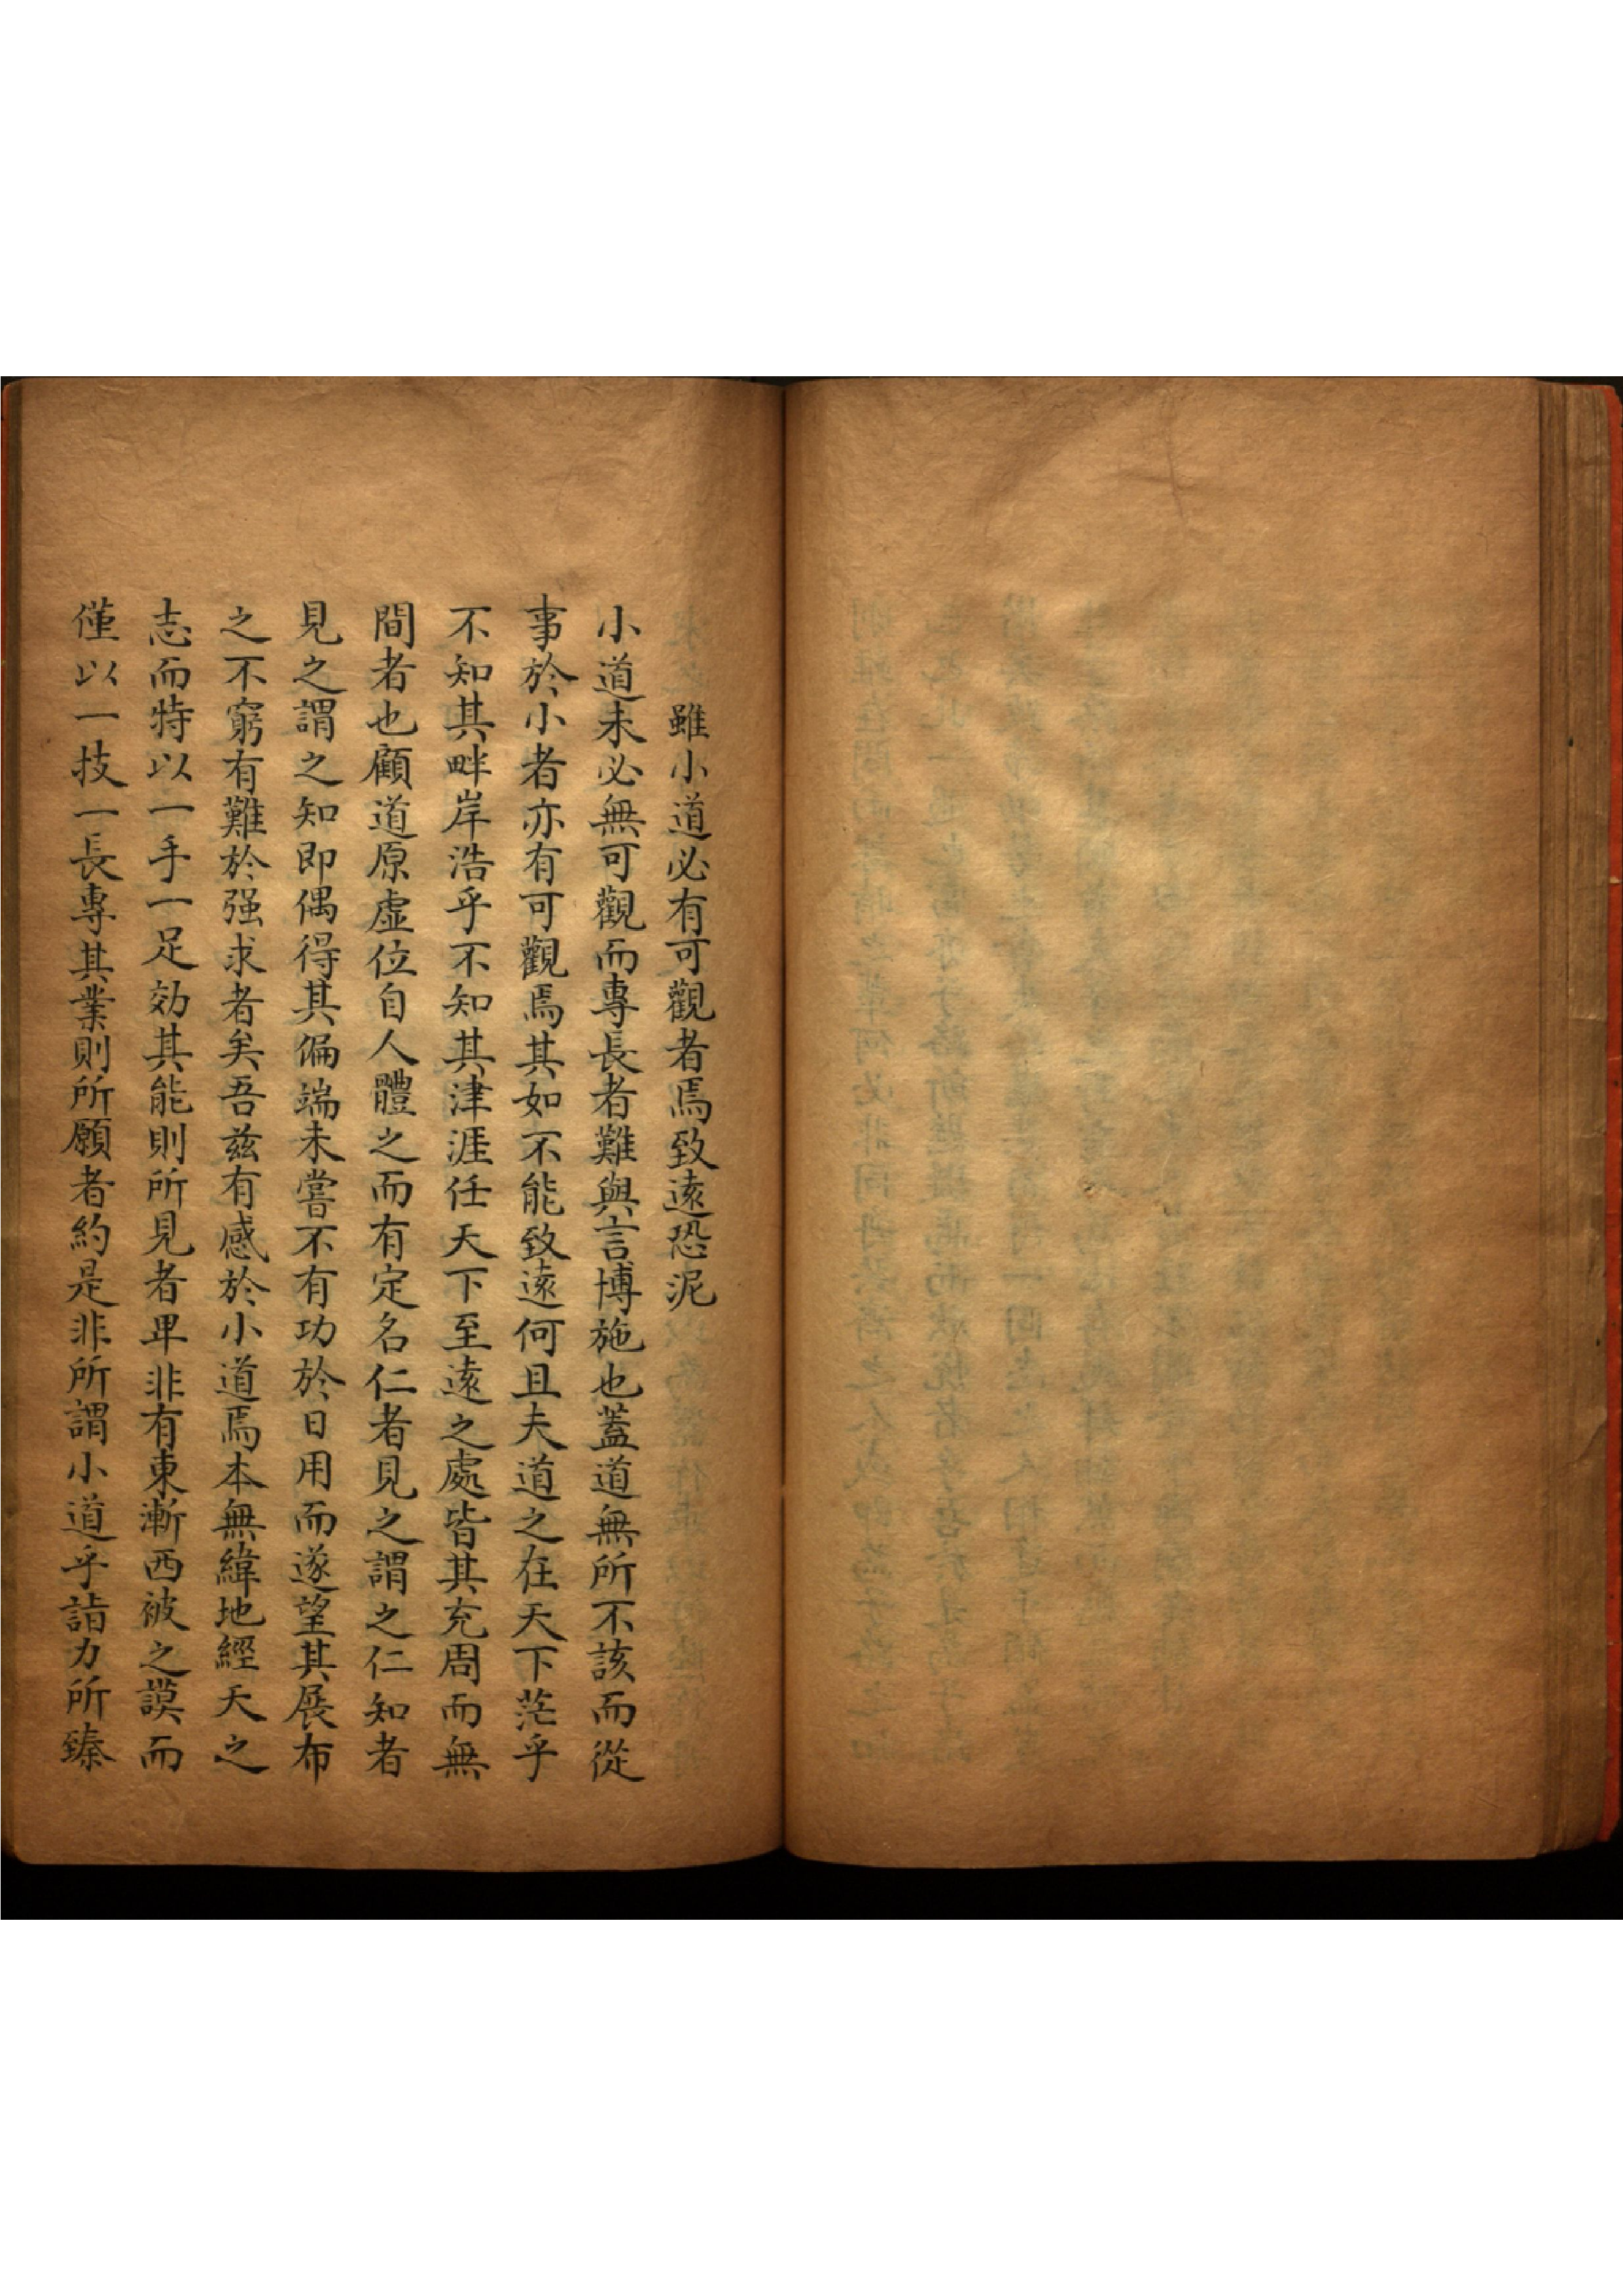 雖小道必有可觀者焉致遠恐泥
小道未必無可觀而專長者難與言博施也蓋道無所不該而從
事於小者亦有可觀焉其如不能致遠何且夫道之在天下茫乎
不知其畔岸浩乎不知其津涯任天下至遠之處皆其充周而無
間者也顧道原虛位自人體之而有定名仁者見之謂之仁知者
見之謂之知即偶得其偏端未嘗不有功於日用而遂望其展布
之不窮有難於强求者矣吾兹有感於小道焉本無緯地經天之
志而特以一手一足効其能則所見者卑非有東漸西被之謨而
僅以一技一長專其業則所願者約是非所謂小道乎詣力所臻